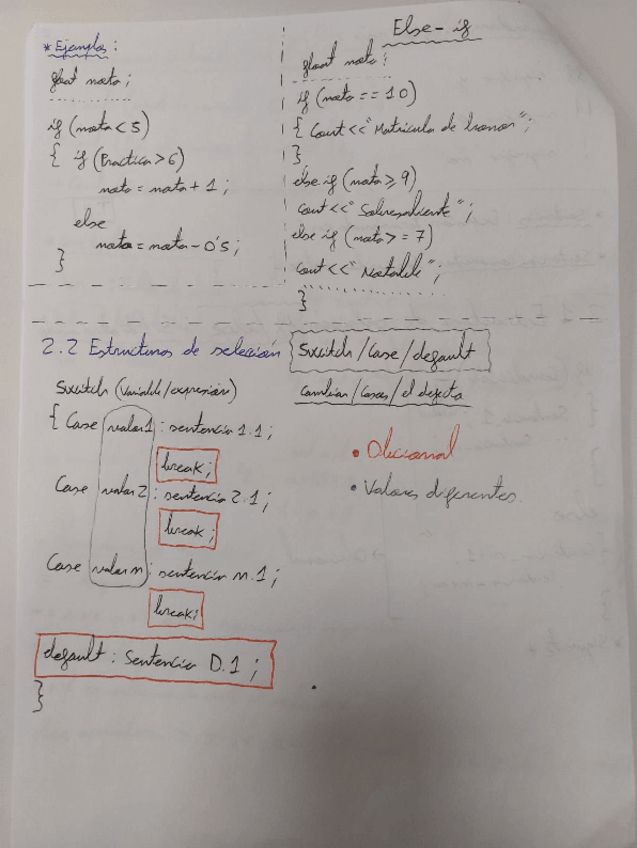 * Ejemplos:
float nota;
if (nota < 5)
{ if (Practica > 6)
nota = nota + 1;
else
nota = nota - 0'5;
}
Else-if
float nota;
if (nota == 10)
{ Cout << "Matricula de honor";
}
else if (nota ≥ 9)
cout << "Sobresaliente";
else if (nota >= 7)
cout << "Notable";
}
2.2 Estructuras de selección Switch/Case/default
Cambiar/Casos/el defecto
Switch (Variable/expresión)
{ Case valor1: sentencia 1.1;
break;
Case valor2: sentencia 2.1;
break;
Case valor n: sentencia n.1;
break;
default: Sentencia D.1;
}
• Opcional
• Valores diferentes.